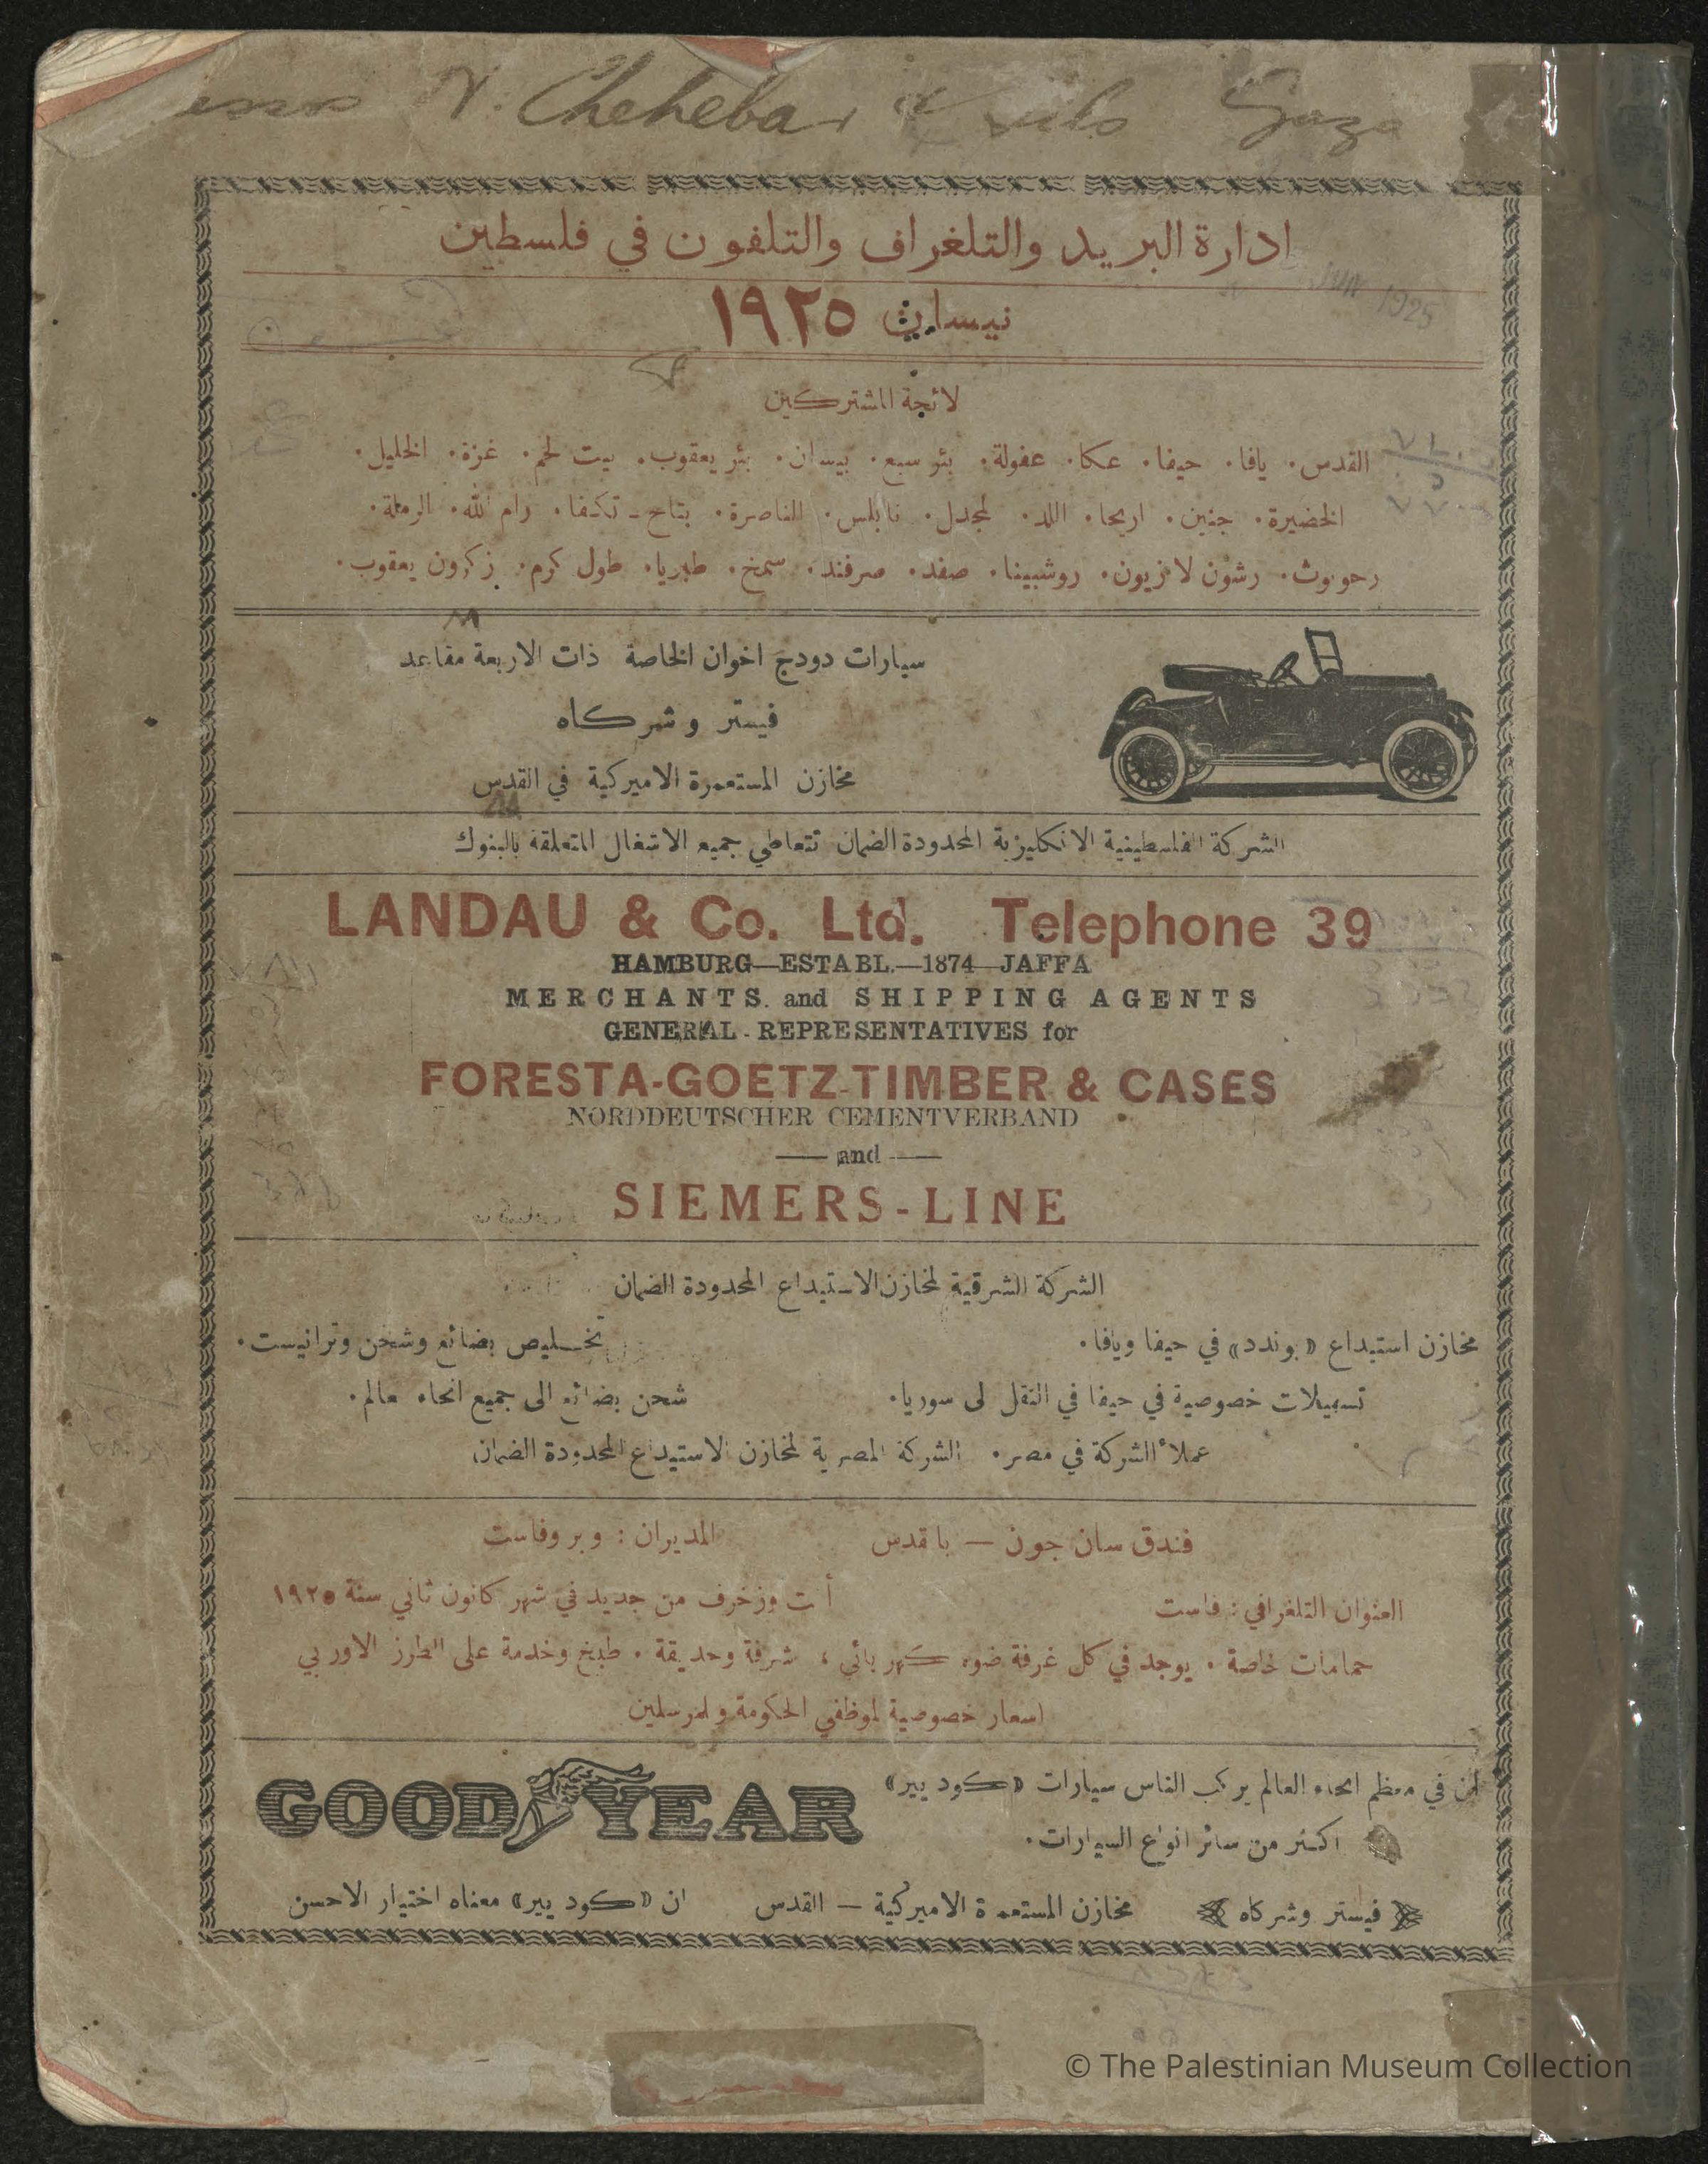 N. Chehebar & Gaza
ادارة البريد والتلغراف والتلفون في فلسطين
JUN 1925
نيسان ١٩٢٥
لائحة المشتركين
القدس. يافا. حيفا. عكا. عفولة. بئر سبع. بيسان. بئر يعقوب. بيت لحم. غزة. الخليل.
الخضيرة. جنين. اريحا. اللد. لمجدل. نابلس. الناصرة. بتاح ـ تكفا. رام لله. الرملة.
رحوبوث. رشون لازيون. روشبينا. صفد. صرفند. سمخ. طبريا. طول كرم. زكرون يعقوب.
سيارات دودج اخوان الخاصة ذات الاربعة مقاعد
فيستر وشركاه
مخازن المستعمرة الاميركية في القدس
الشركة الفلسطينية الانكليزية المحدودة الضمان تتعاطي جميع الاشغال المتعلقة بالبنوك
LANDAU & Co. Ltd. Telephone 39
HAMBURG—ESTABL.—1874—JAFFA
MERCHANTS. and SHIPPING AGENTS
GENERAL - REPRESENTATIVES for
FORESTA-GOETZ-TIMBER & CASES
NORDDEUTSCHER CEMENTVERBAND
— and —
SIEMERS-LINE
الشركة الشرقية لمخازن الاستيداع المحدودة الضمان
مخازن استيداع «بوندد» في حيفا ويافا. تخـليص بضائع وشحن وترانيست.
تسهيلات خصوصية في حيفا في النقل لى سوريا. شحن بضائع الى جميع انحاء عالم.
عملاء الشركة في مصر. الشركة المصرية لمخازن الاستيداع المحدودة الضمان
فندق سان جون — با قدس المديران : وبر وفاست
العنوان التلغرافي : فاست أ ت وزخرف من جديد في شهر كانون ثاني سنة ١٩٢٥
حمامات خاصة . يوجد في كل غرفة ضوء كهربائي ، شرفة وحديقة . طبخ وخدمة على الطرز الاوربي
اسعار خصوصية لموظفي الحكومة والمرسلين
GOOD YEAR
ان في معظم انحاء العالم يركب الناس سيارات «كود يير»
اكثر من سائر انواع السيارات.
فيستر وشركاه مخازن المستعمرة الاميركية — القدس ان «كود يير» معناه اختيار الاحسن
© The Palestinian Museum Collection